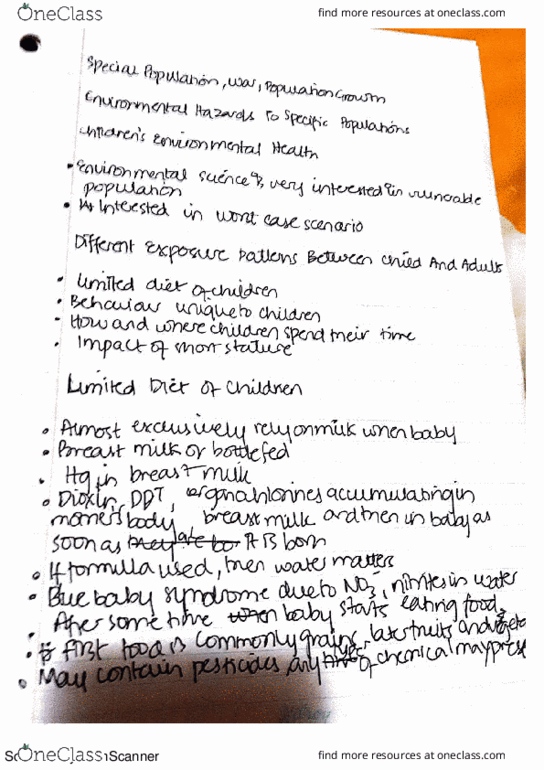 OneClass
find more resources at oneclass.com
Special Population, War, Population Growth
Environmental Hazards To Specific Populations
Children's Environmental Health
• Environmental science very interested in vulnerable
population
• Interested in worst case scenario
Different Exposure Patterns Between Child And Adults
• Limited diet of children
• Behaviour unique to children
- How and where children spend their time
• Impact of short stature
Limited Diet Of Children
• Almost exclusively rely on milk when baby
• Breast milk or bottle fed
• Hg in breast milk
• Dioxin, DDT, organochlorines accumulating in
mother's body breast milk and then in baby as
soon as it is born
• If formula used, then water matters
• Blue baby syndrome due to NO3-, nitrites in water
• After some time baby starts eating food,
• first food is commonly grains, later fruits and
• May contain pesticides any of chemical may
OneClass
Scanner
find more resources at oneclass.com